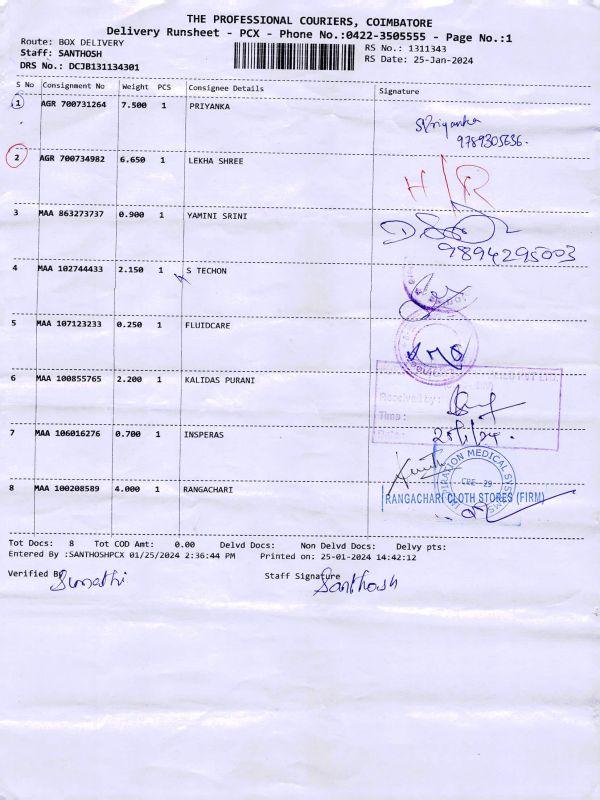 THE PROFESSIONAL COURIERS, COIMBATORE
Delivery Runsheet - PCX - Phone No.:0422-3505555 - Page No.:1
Route: BOX DELIVERY
RS No.: 1311343
Staff: SANTHOSH
RS Date: 25-Jan-2024
DRS No.: DCJB131134301
S No Consignment No Weight PCS Consignee Details Signature
1 AGR 700731264 7.500 1 PRIYANKA
S.Priyanka
9789305636.
2 AGR 700734982 6.650 1 LEKHA SHREE
H/R
3 MAA 863273737 0.900 1 YAMINI SRINI
9894295003
4 MAA 102744433 2.150 1 S TECHON
5 MAA 107123233 0.250 1 FLUIDCARE
6 MAA 100855765 2.200 1 KALIDAS PURANI
PVT LTD.
Received by :
Time :
Date :
25/1/24.
7 MAA 106016276 0.700 1 INSPERAS
INSPIRATION MEDICAL SYSTEMS
CBE - 29
8 MAA 100208589 4.000 1 RANGACHARI
RANGACHARI CLOTH STORES (FIRM)
Tot Docs: 8 Tot COD Amt: 0.00 Delvd Docs: Non Delvd Docs: Delvy pts:
Entered By :SANTHOSHPCX 01/25/2024 2:36:44 PM Printed on: 25-01-2024 14:42:12
Verified By Sumathi Staff Signature Santhosh